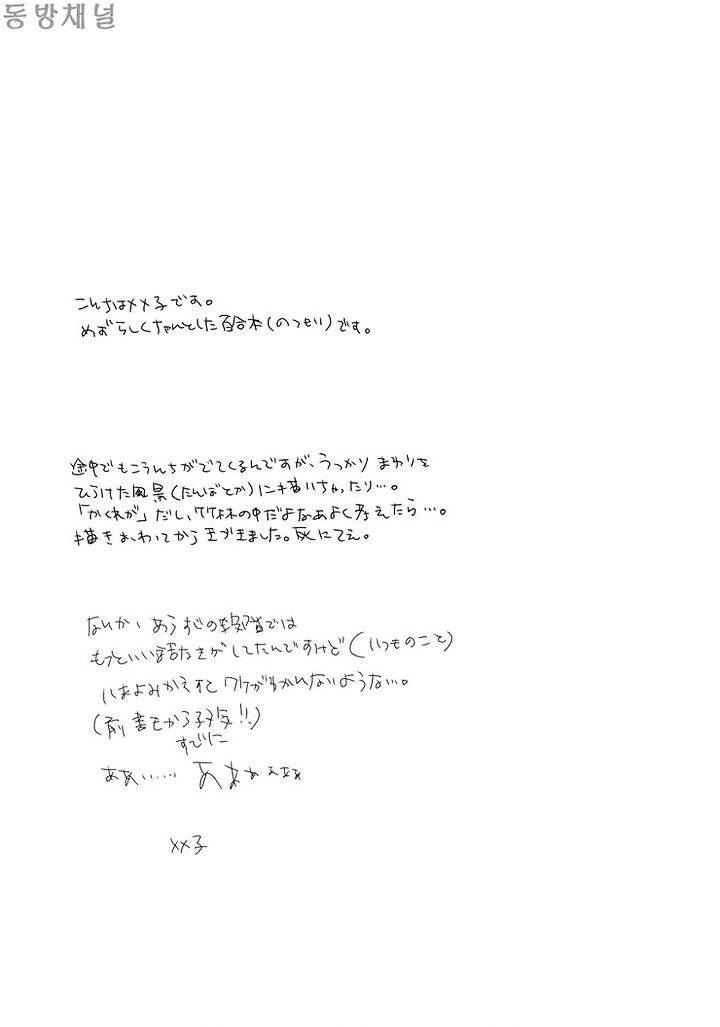 동방채널
こんちはメメ子です。
めずらしくちゃんとした百合本(のつもり)です。
途中でもこうんちがでてくるんですが、うっかり まわりを
ひらけた風景(たんぼとか)に描いちゃったり…。
「かくれが」だし、竹林の中だよなあよく考えたら…。
描きおわってから気づきました。灰にてえ。
なんか、あらすじの段階では
もっといい話なきがしてたんですけど(いつものこと)
いまよみかえすと ワケがわかんないような…。
(前書きから
すでに
ああ…… あぁぁぁぁぁ
メメ子